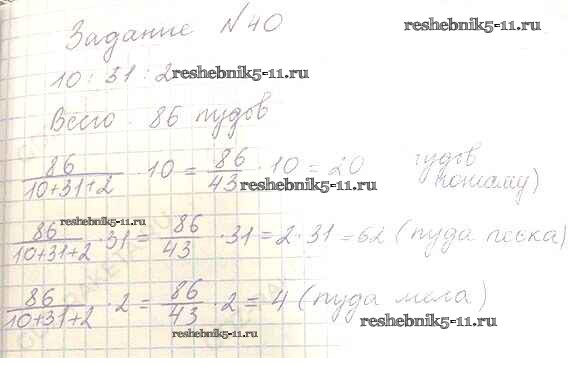 Задание №40
reshebnik5-11.ru
10 : 31 : 2
reshebnik5-11.ru
Всего - 86 пудов
86/(10+31+2) · 10 = 86/43 · 10 = 20 пудов
reshebnik5-11.ru
reshebnik5-11.ru
86/(10+31+2) · 31 = 86/43 · 31 = 2 · 31 = 62 (пуда песка)
86/(10+31+2) · 2 = 86/43 · 2 = 4 (пуда мела)
reshebnik5-11.ru
reshebnik5-11.ru